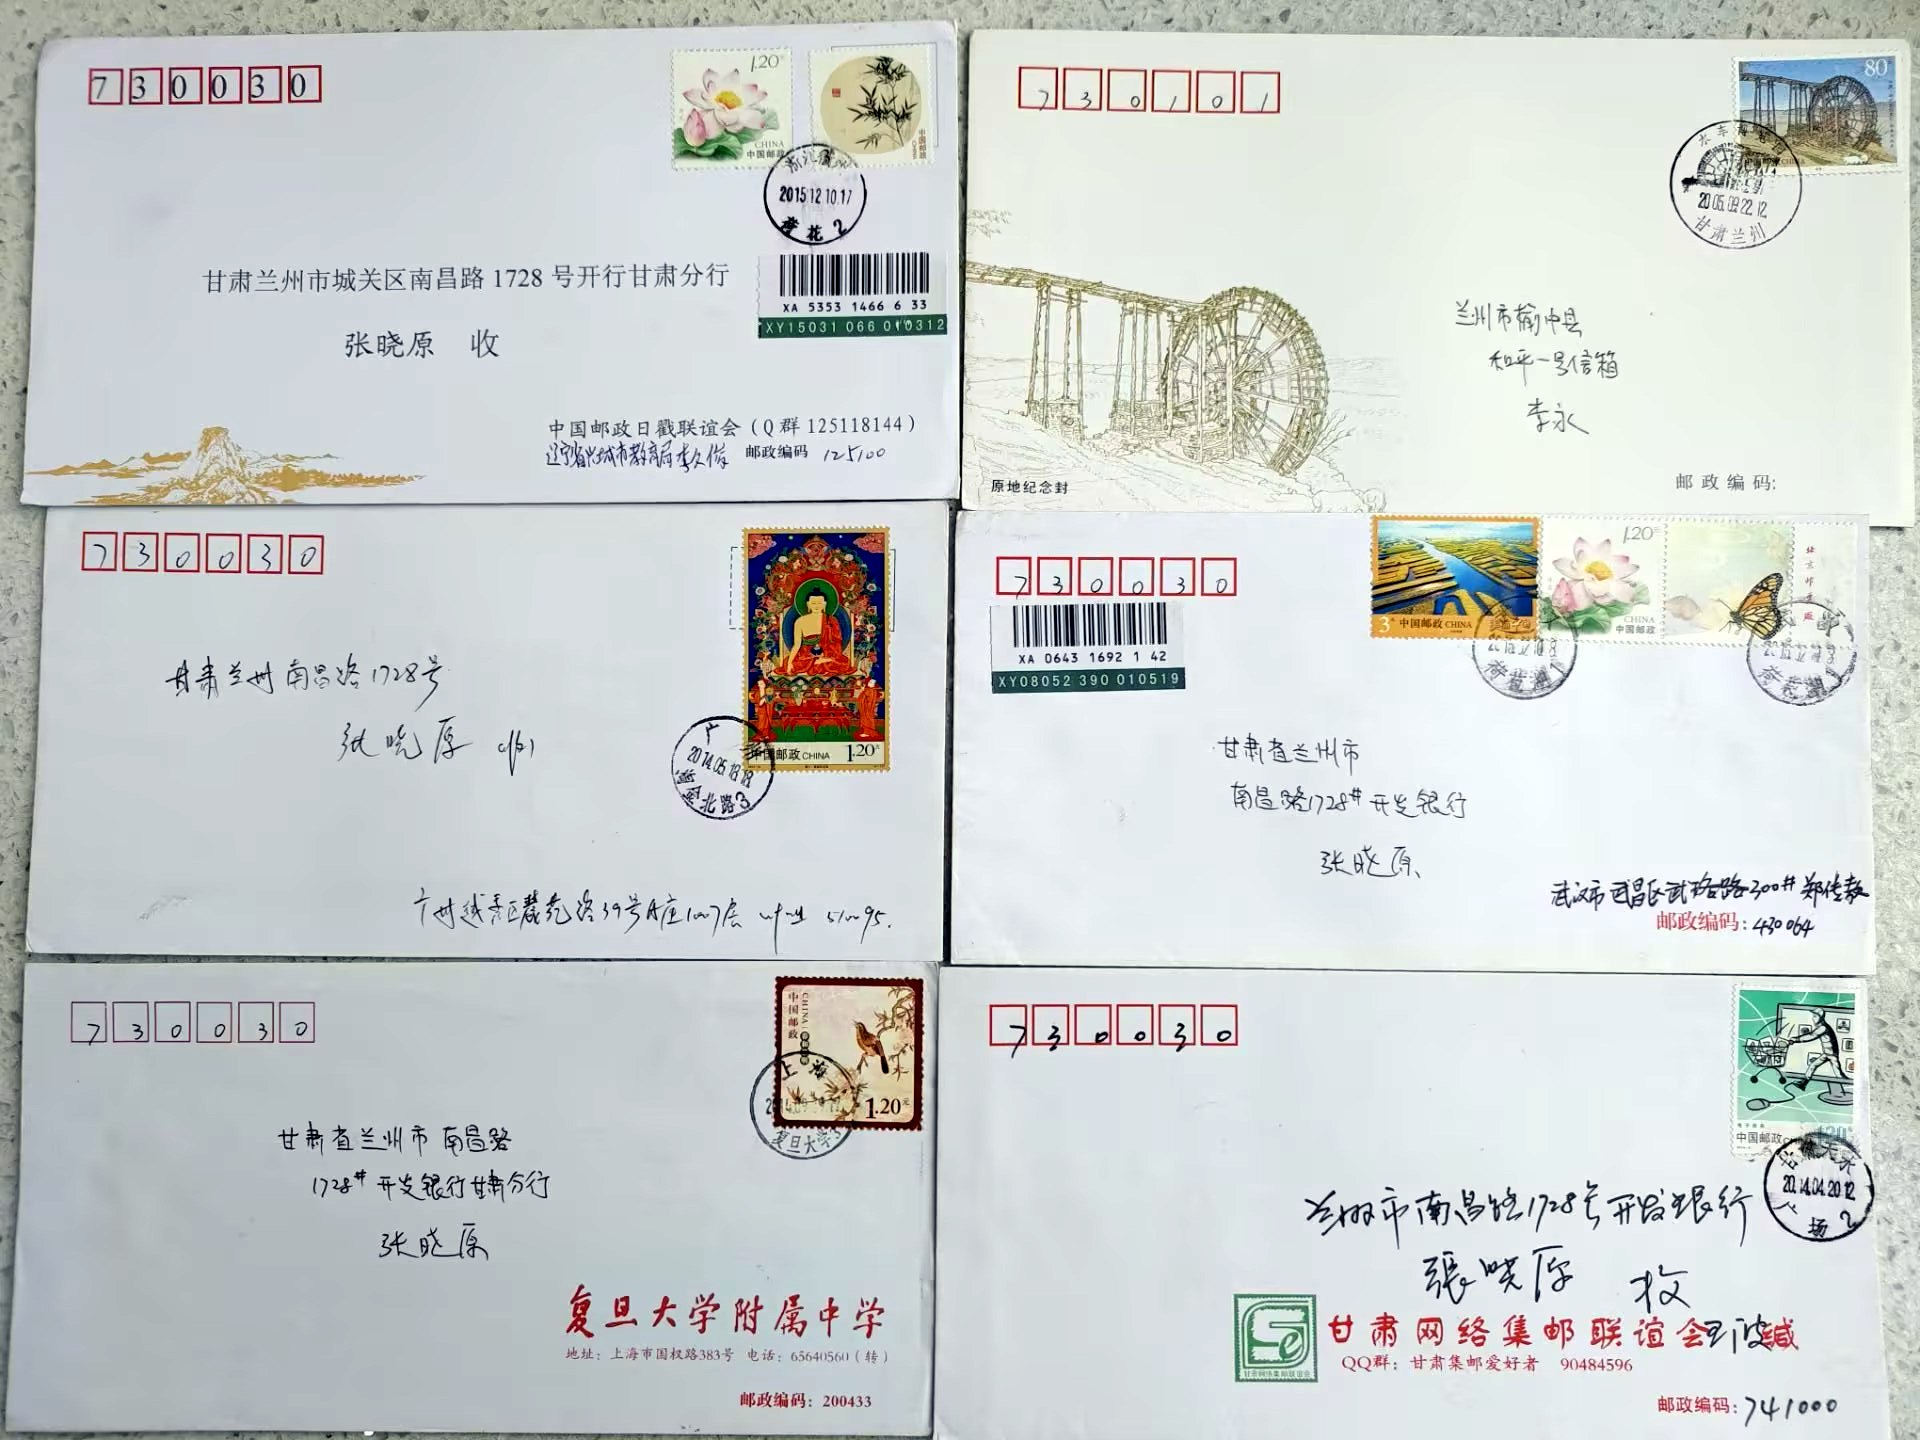 730030
1.20元
CHINA
中国邮政
中国邮政
2015.12.10.17
荷花2
XA 5353 1466 6 33
XY15031 066 010312
甘肃兰州市城关区南昌路1728号开行甘肃分行
张晓原 收
中国邮政日戳联谊会(Q群125118144)
辽宁省兴城市教育局李久俊 邮政编码 125100
730101
80
2005.09.22.12
甘肃兰州
兰州市榆中县
和平一号信箱
李永
原地纪念封
邮政编码:
730030
中国邮政 CHINA 1.20元
广州
2014.05.18.18
北路3
甘肃兰州南昌路1728号
张晓原 收
广州越秀区麓苑路39号A座1007层 510095.
730030
3元 中国邮政 CHINA
1.20元
CHINA
中国邮政
XA 0643 1692 1 42
XY08052 390 010519
甘肃省兰州市
南昌路1728# 开发银行
张晓原
武汉市武昌区武珞路300# 郑传教
邮政编码: 430064
730030
中国邮政
CHINA
1.20元
上海
复旦大学3
甘肃省兰州市南昌路
1728# 开发银行甘肃分行
张晓原
复旦大学附属中学
地址: 上海市国权路383号 电话: 65640560(转)
邮政编码: 200433
730030
中国邮政
甘肃天水
2014.04.20.12
广场2
兰州市南昌路1728号开发银行
張晓原 收
甘肃网络集邮联谊会 王波 缄
甘肃网络集邮联谊会
QQ群: 甘肃集邮爱好者 90484596
邮政编码: 741000